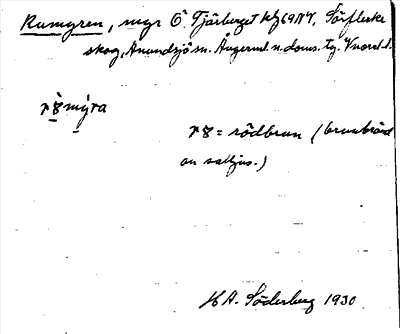 Rumyren, myr Ö Tjärberget kfg 69 NV, Sörflärke
skog, Anundsjö sn. Ångerml. n. doms. tg. V norrl. l.
mýra
= rödbrun (brunbränd
av solljus.)
H A. Söderberg 1930